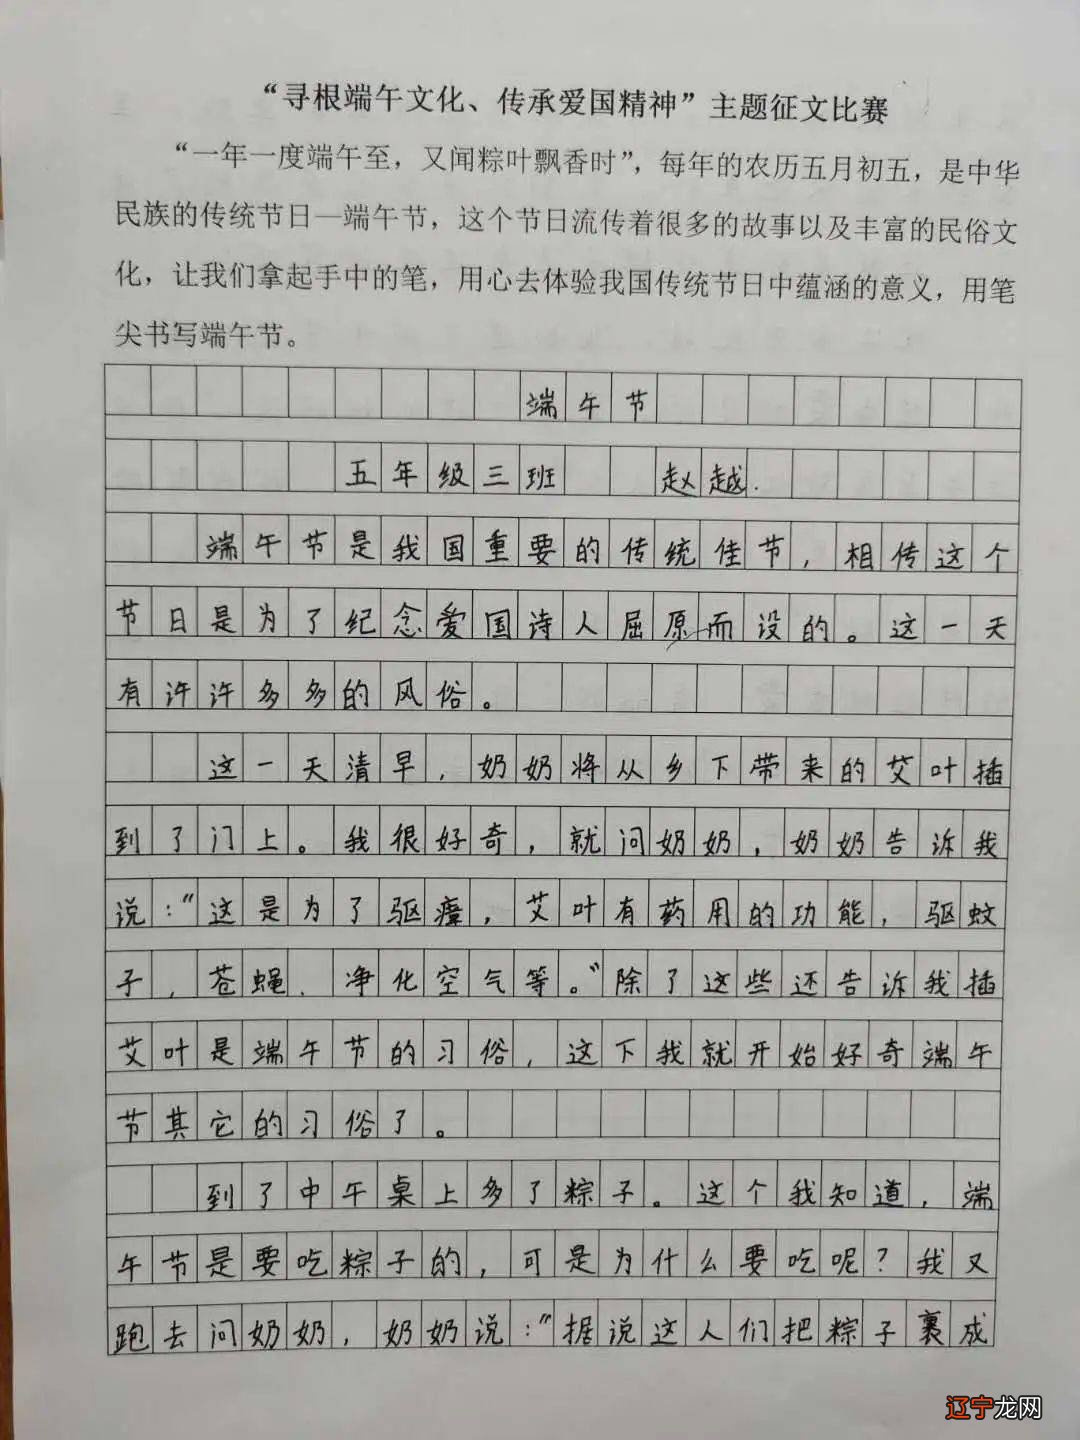 “寻根端午文化、传承爱国精神”主题征文比赛
“一年一度端午至，又闻粽叶飘香时”，每年的农历五月初五，是中华
民族的传统节日—端午节，这个节日流传着很多的故事以及丰富的民俗文
化，让我们拿起手中的笔，用心去体验我国传统节日中蕴涵的意义，用笔
尖书写端午节。
端午节
五年级三班 赵越.
端午节是我国重要的传统佳节，相传这个
节日是为了纪念爱国诗人屈原而设的。这一天
有许许多多的风俗。
这一天清早，奶奶将从乡下带来的艾叶插
到了门上。我很好奇，就问奶奶，奶奶告诉我
说：“这是为了驱瘴，艾叶有药用的功能，驱蚊
子，苍蝇、净化空气等。”除了这些还告诉我插
艾叶是端午节的习俗，这下我就开始好奇端午
节其它的习俗了。
到了中午桌上多了粽子。这个我知道，端
午节是要吃粽子的，可是为什么要吃呢？我又
跑去问奶奶，奶奶说：“据说这人们把粽子裹成
辽宁龙网